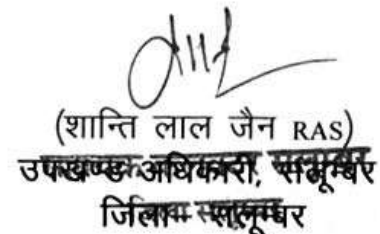 (शान्ति लाल जैन RAS)
उपखण्ड अधिकारी, सलूम्बर
जिला - सलूम्बर